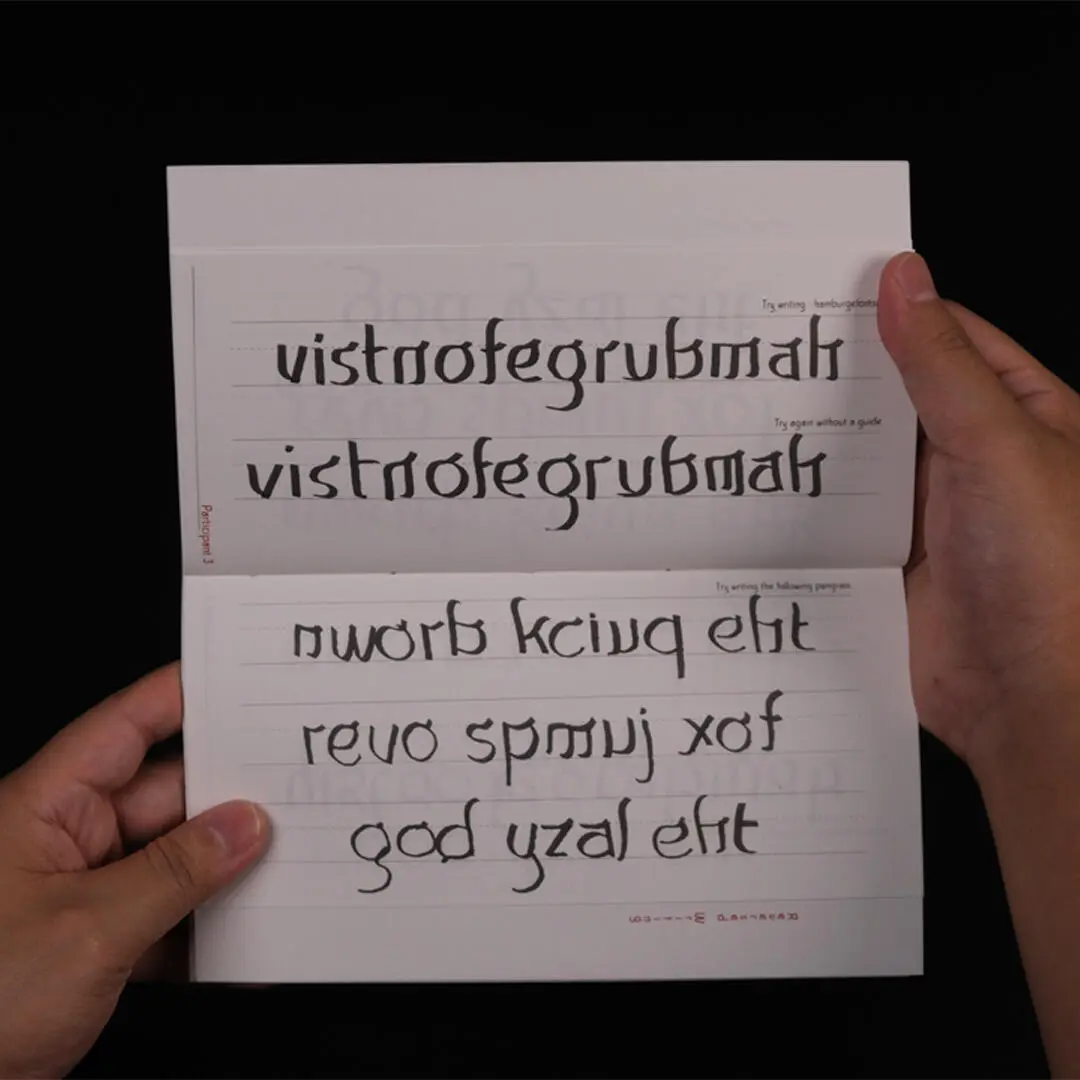 Try writing
vistnofegrubmah
Try again without a guide
vistnofegrubmah
Participant 3
Try writing the following pangram
nworb kciuq eht
revo spmuj xof
god yzal eht